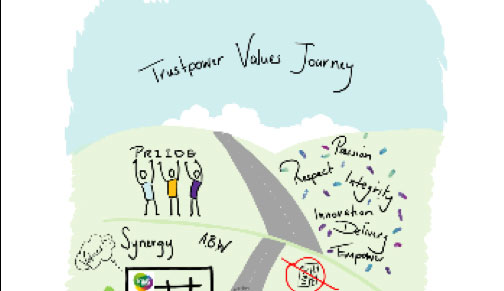 Trustpower Values Journey
PRIIDE
Passion
Respect
Integrity
Innovation
Delivery
Empower
Synergy
ABW